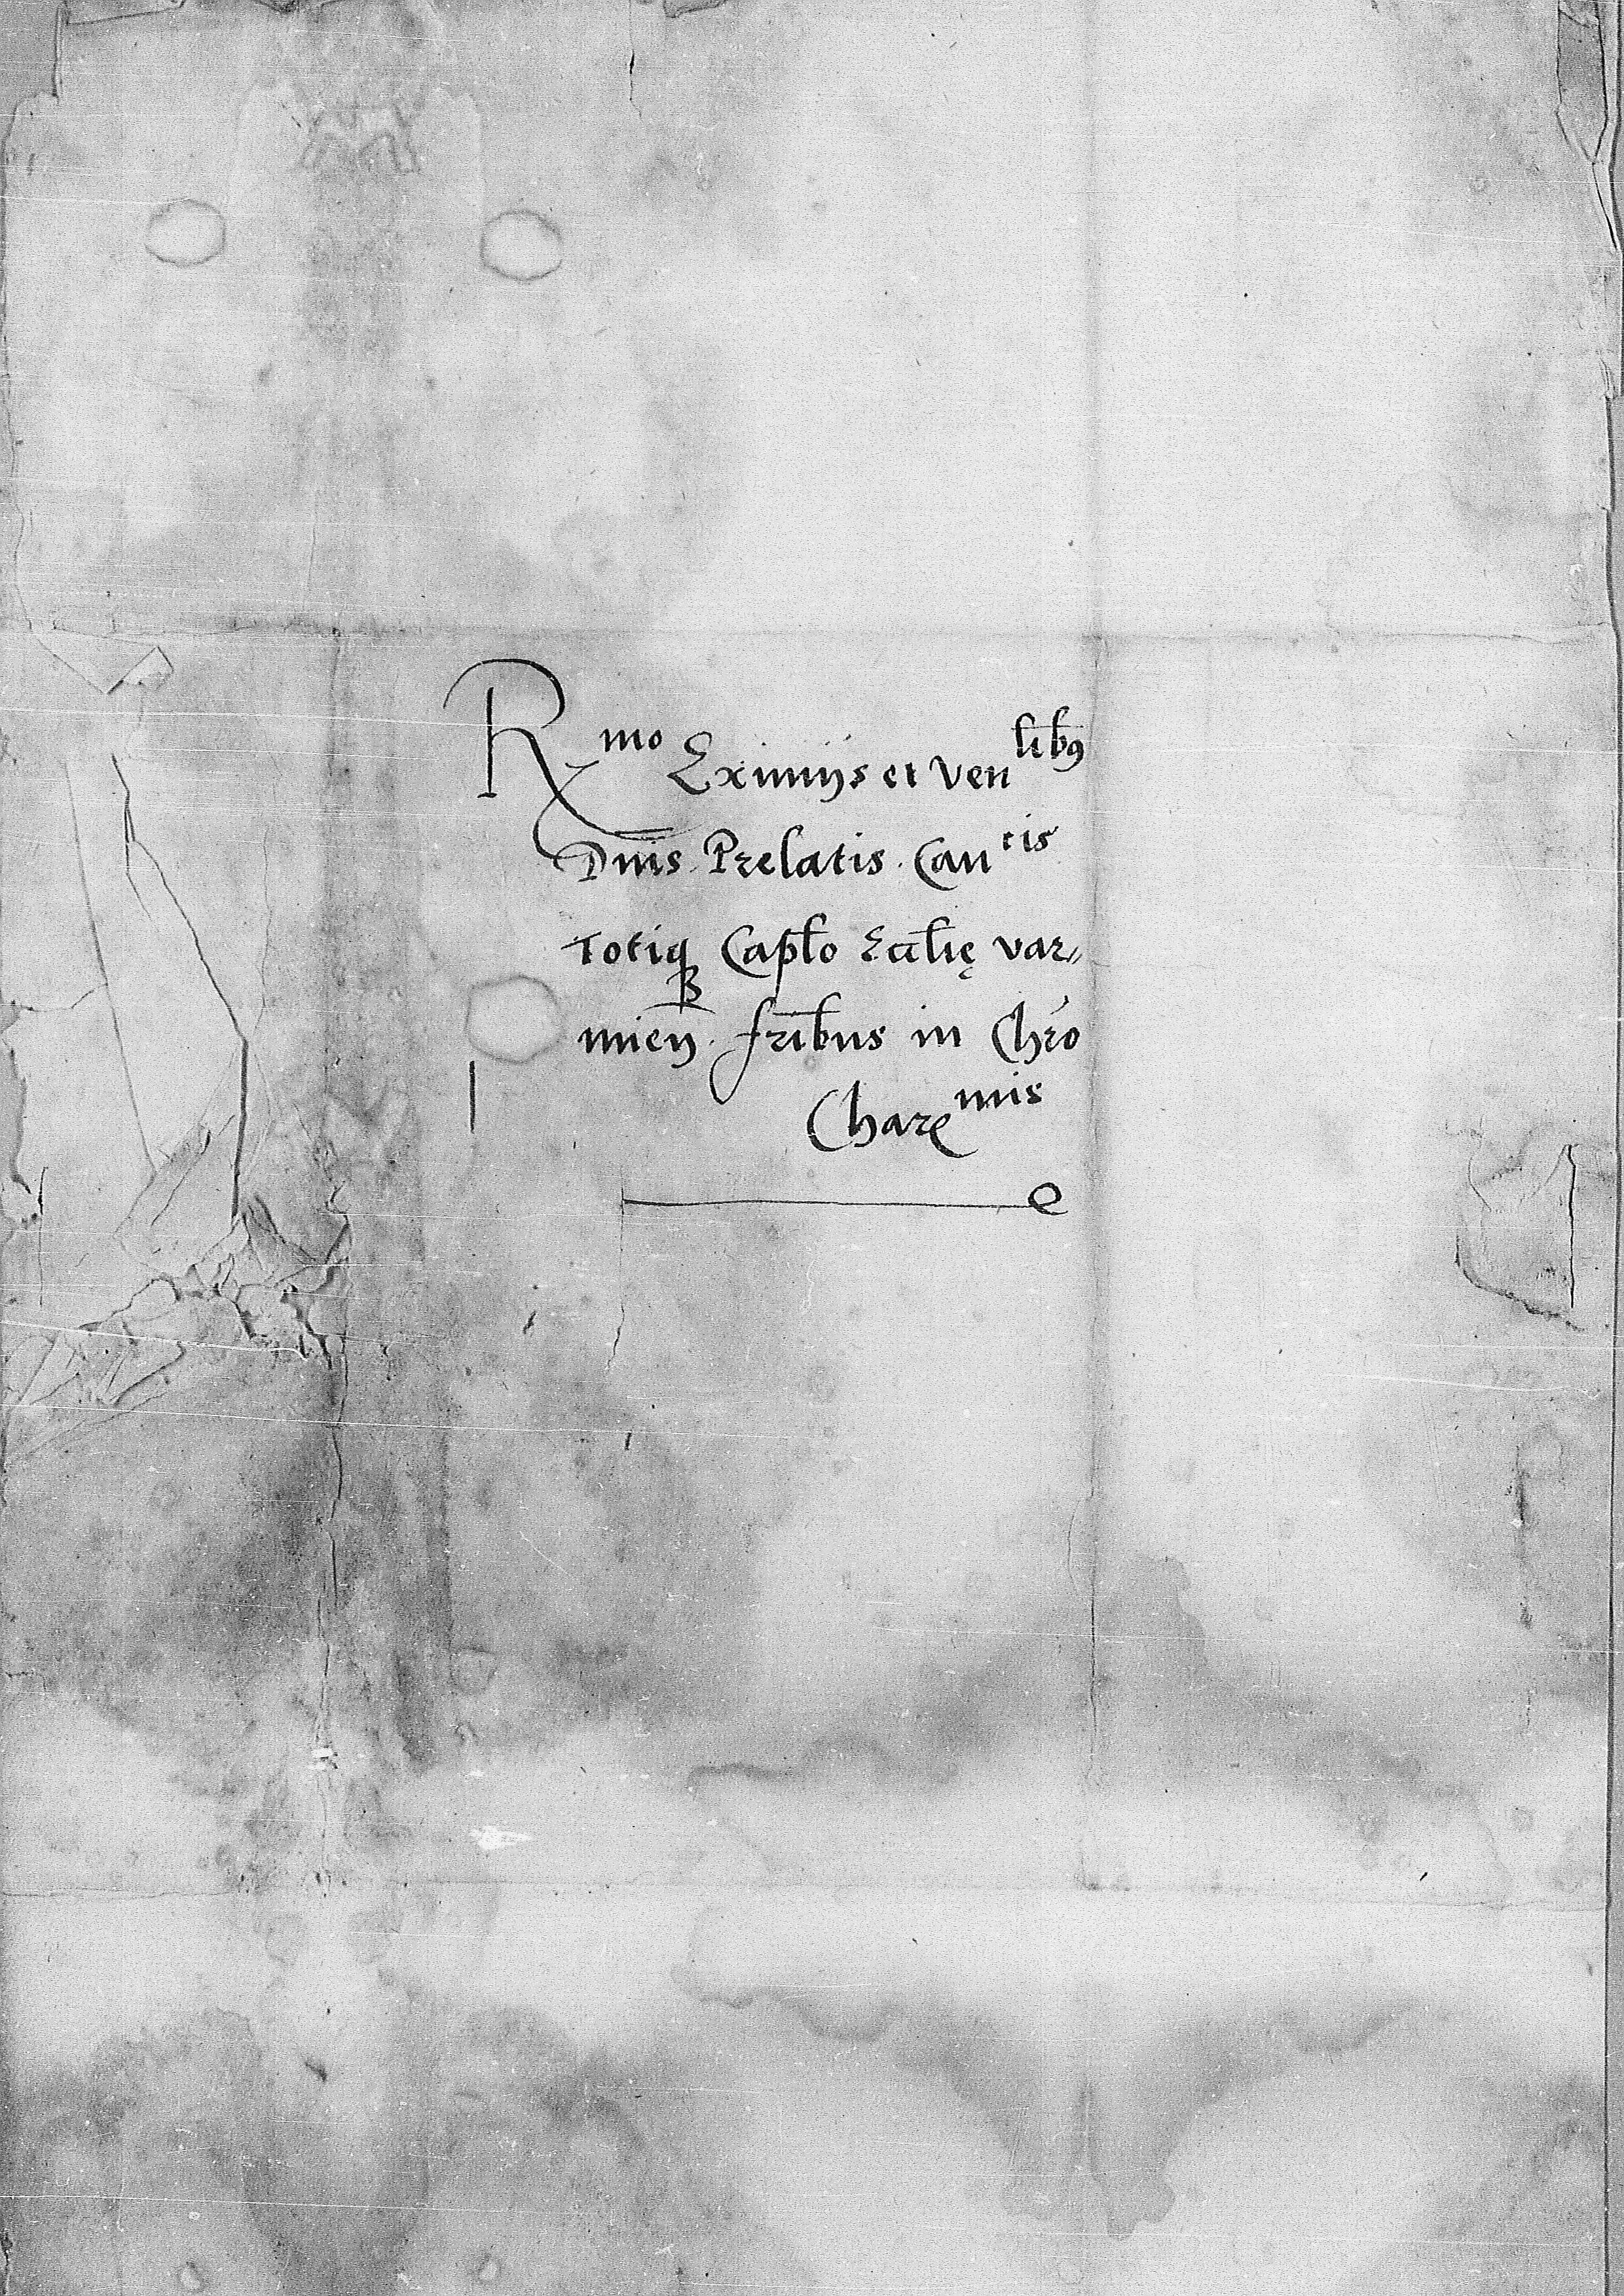 Rmo Eximijs et Venlibꝰ
Dnīs. Prelatis. Cancis
Totiqꝫ Capl̄o Eccl̄ię var〃
mien̄. fr̄ibus in Chr̄o
Charemis